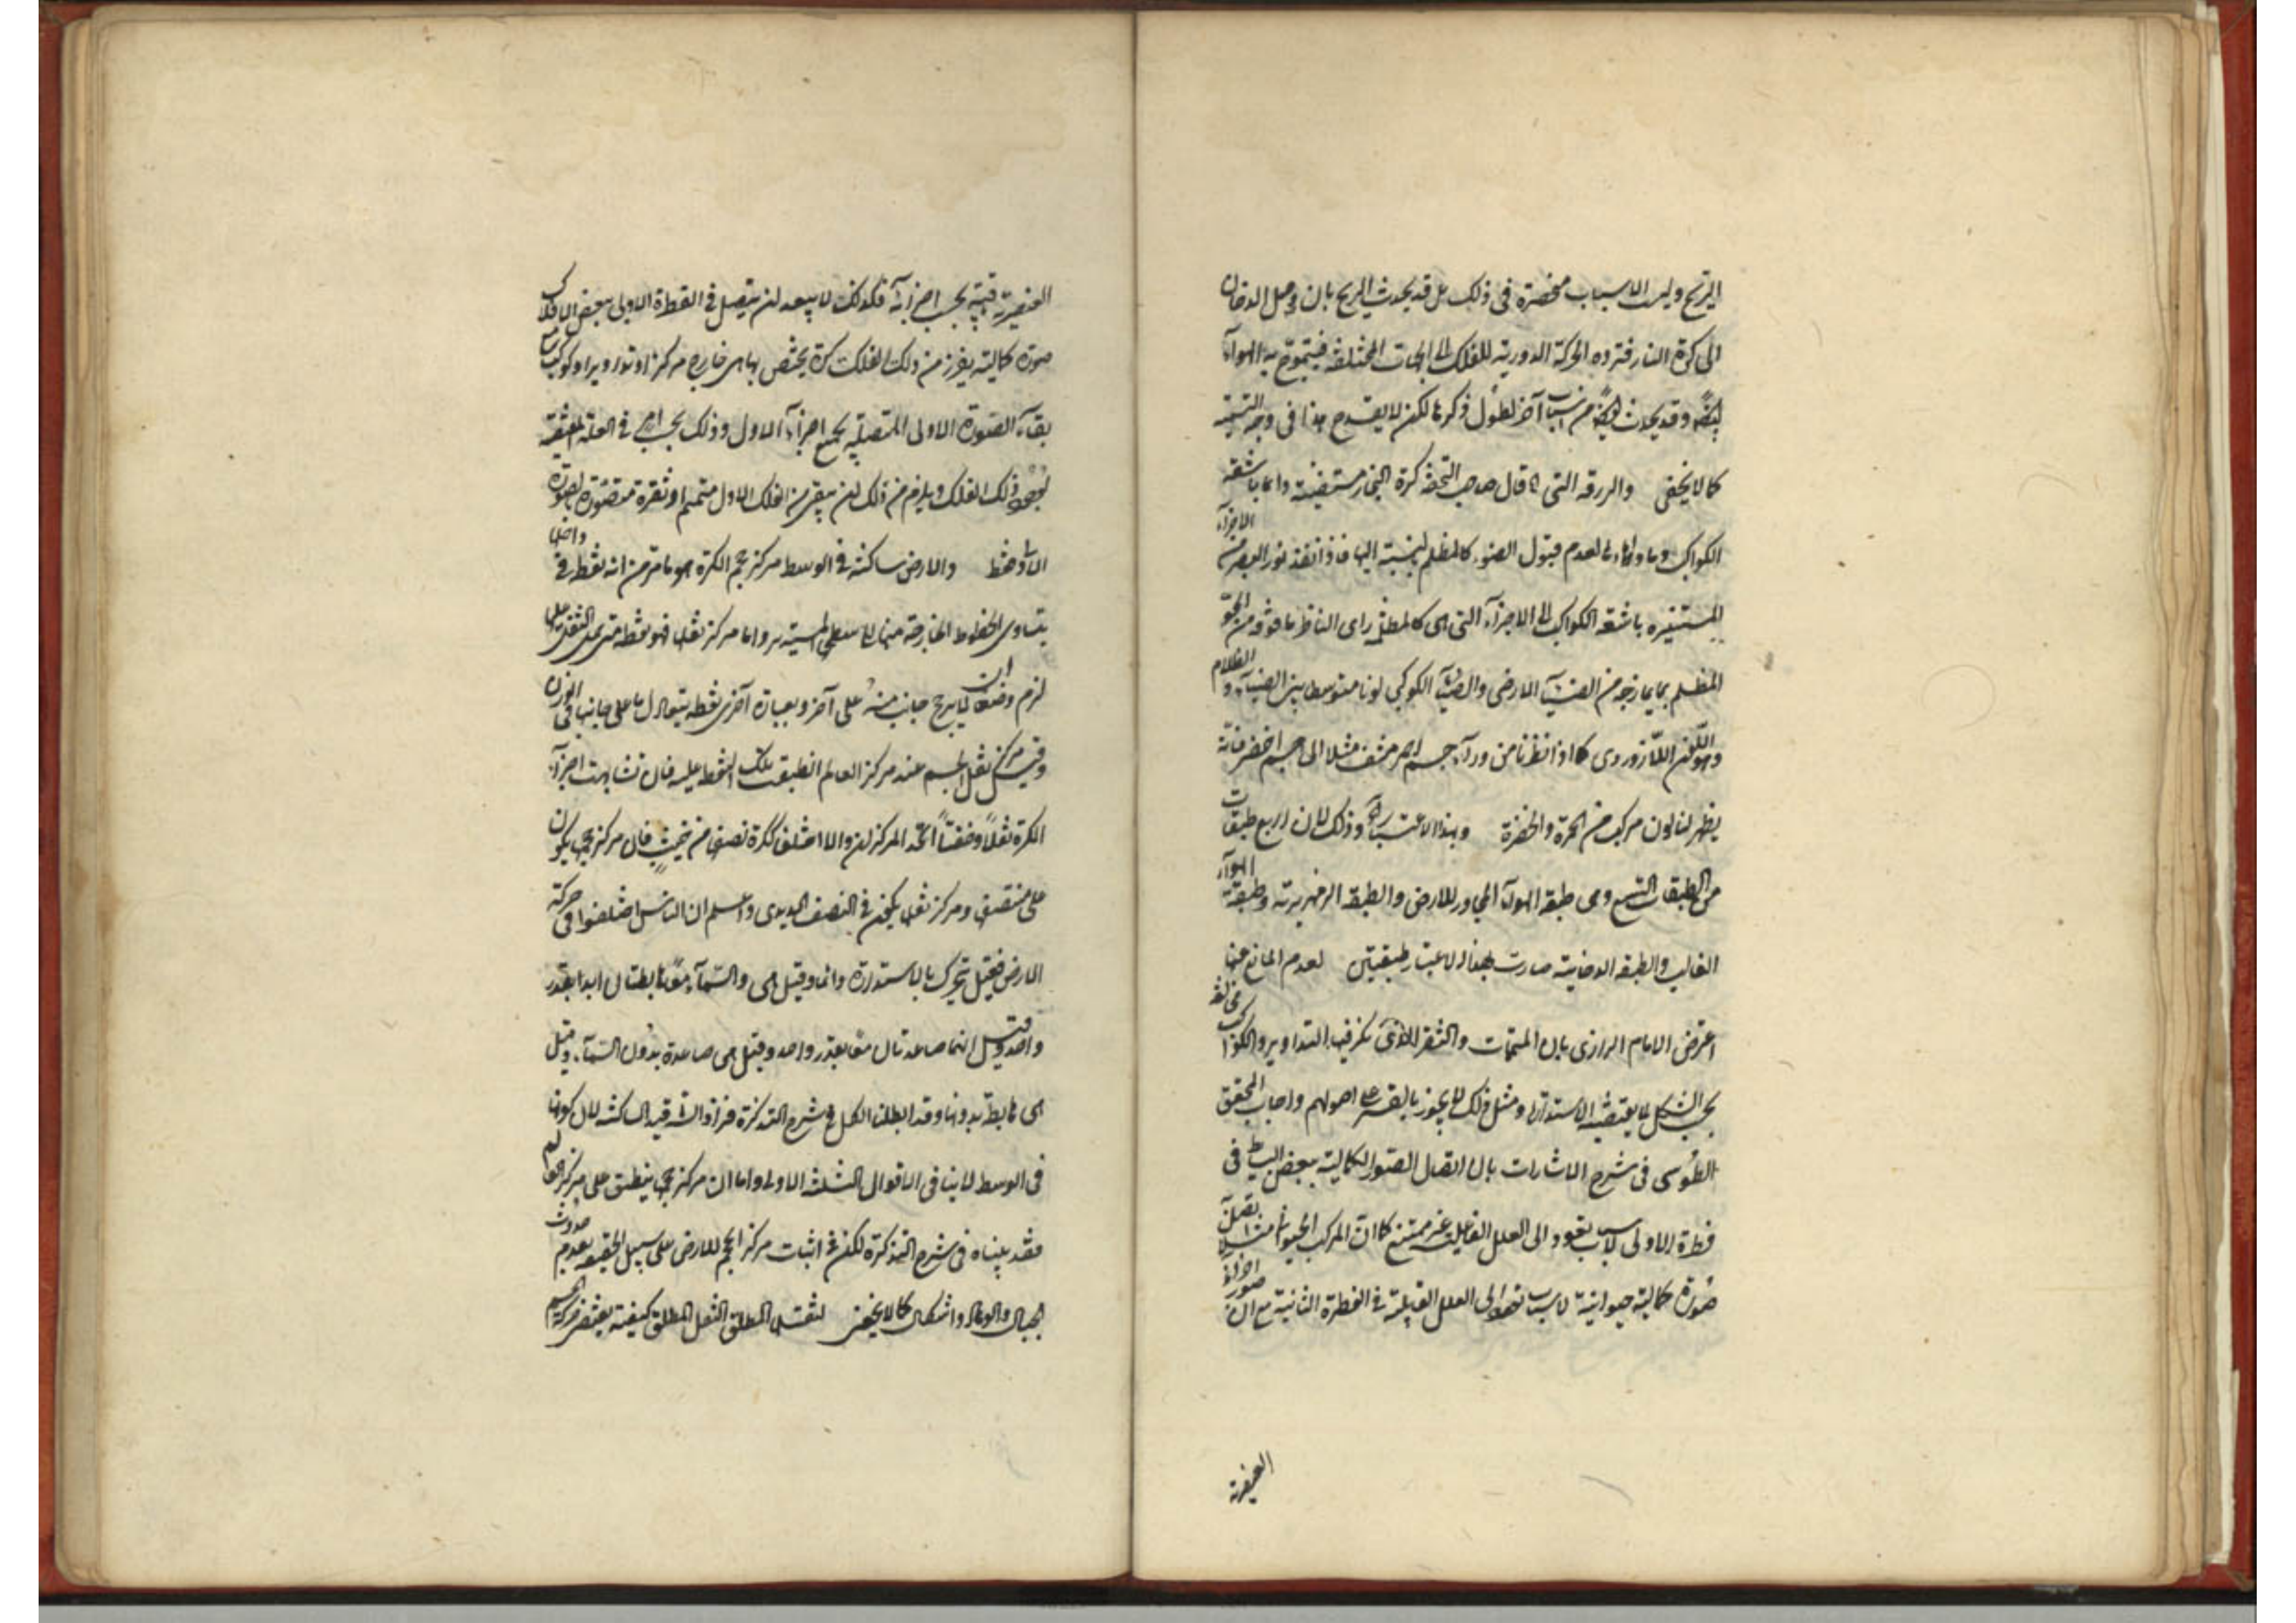 الريح وليست الاسباب منحصرة فى ذلك بل قد يحدث الريح بان وصل الدخان
الى كرة النار فترده الحركة الدورية للفلك الى الجهات المختلفة فيتموج به الهواء
ايضا وقد يحدث ايضا من اسباب آخر لطول ذكرها لكن لا يقدح هذا فى وجه التسمية
كما لا يخفى والزرقة التى قال صاحب التحفة كرة البخار مستضيئة دائما باشعة
الكواكب وما وراءها لعدم قبول الضوء كالمظلم بالنسبة اليها فاذا نفذ نور البصر من الاجزاء
المستنيرة باشعة الكواكب الى الاجزاء التى هى كالمظلم راى الناظر ما فوقه من الجو
المظلم بما يمازجه من الضياء الارضى والضياء الكوكبى لونا متوسطا بين الضياء والظلام
وهو اللون اللازوردى كما اذا نظرنا من وراء جسم احمر مشف مثلا الى جسم اخضر فانه
يظهر لنا لون مركب من الحمرة والخضرة وبهذا الاعتبار وذلك لان اربع طبقات
من الطبقات التسع وهى طبقة الهواء المجاور للارض والطبقة الزمهريرية وطبقة الهواء
الغالب والطبقة الدخانية صارت بهذا الاعتبار طبقتين لعدم المانع عنها
اعترض الامام الرازى بان المتممات والنقر التى تكون فيها التداوير والكواكب مخالفة
بحسب الشكل لما يقتضيه الاستدارة ومثل ذلك لا يجوز بالقسر على اصولهم واجاب المحقق
الطوسى فى شرح الاشارات بان اتصال الصور الكمالية ببعض البسائط فى
فطرة الاولى لاسباب تعود الى العلل الفاعلية غير ممتنع كما ان المركب الحيوانى مثلا تتصل
صورة كمالية حيوانية لاسباب تعود الى العلل القابلية فى الفطرة الثانية مع ان صور اجزائه
العنصرية
العنصرية باقية بحسب اجزائه فكذلك لا يبعد ان يتصل فى الفطرة الاولى ببعض الافلاك
صورة كمالية يفرز من ذلك الفلك كرة يختص بها هى خارج مركز او تدوير او كوكب مع
بقاء الصورة الاولى المتصلة بجميع اجزاء الاول وذلك بحسب امر فى العلة المقتضية
لوجود ذلك الفلك ويلزم من ذلك ان يبقى من الفلك الاول متمم او نقرة متصورة بصورة
الاولى فقط والارض ساكنة فى الوسط مركز حجم الكرة هو ما مر من انه نقطة فى داخلها
يتساوى الخطوط الخارجة منها الى سطحها المستدير واما مركز ثقلها فهو نقطة متى حمل الثقل على
لزم وضعه لم يترجح جانب منه على آخر وبعبارة اخرى نقطة يتعادل ما على جانبها فى الوزن
ومتى كان مركز ثقل الجسم عند مركز العالم انطبقت تلك النقطة عليه فان تشابهت اجزاء
الكرة ثقلا وخفة اتحد المركزان والا اختلفا ككرة نصفها من خشب فان مركز حجمها يكون
على منتصفها ومركز ثقلها يكون فى النصف الحديدى واعلم ان الناس اختلفوا فى حركة
الارض فقيل يتحرك بالاستدارة دائما وقيل هى والسماء معا هابطتان ابدا بقدر
واحد وقيل انهما صاعدتان معا بقدر واحد وقيل هى صاعدة بدون السماء وقيل
هى هابطة بدونها وقد ابطلنا الكل فى شرح التذكرة فزاد الشارح قيد الساكنة لان كونها
فى الوسط لا ينافى الاقوال الثلثة الاولى واما ان مركز حجمها ينطبق على مركز العالم
فقد بيناه فى شرح التذكرة لكن فى اثبات مركز الحجم للارض على سبيل الحقيقة بعدم حدوث
الجبال والوهاد واشكال كما لا يخفى لثقله المطلق الثقل المطلق كيفية يقتضى حركة الجسم